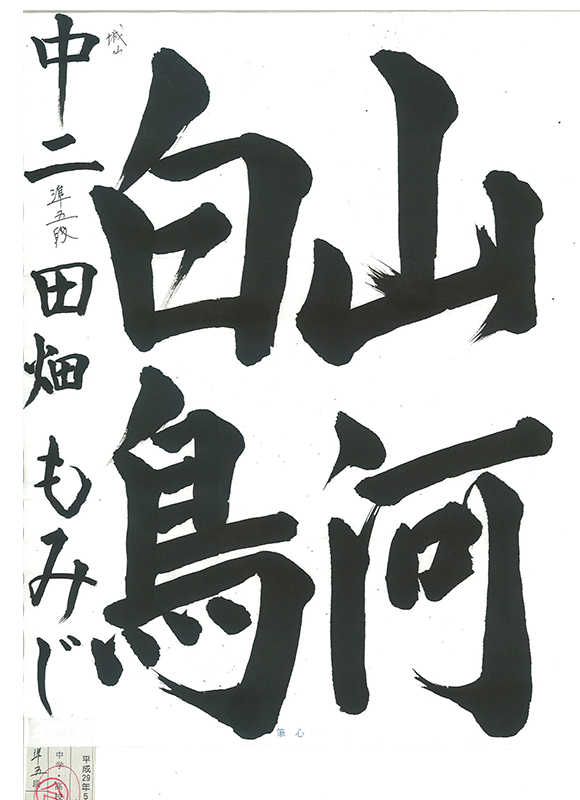 山河
白鳥
中二 田畑もみじ
城山
準五段
心筆
平成29年5
中学・高校
準五段